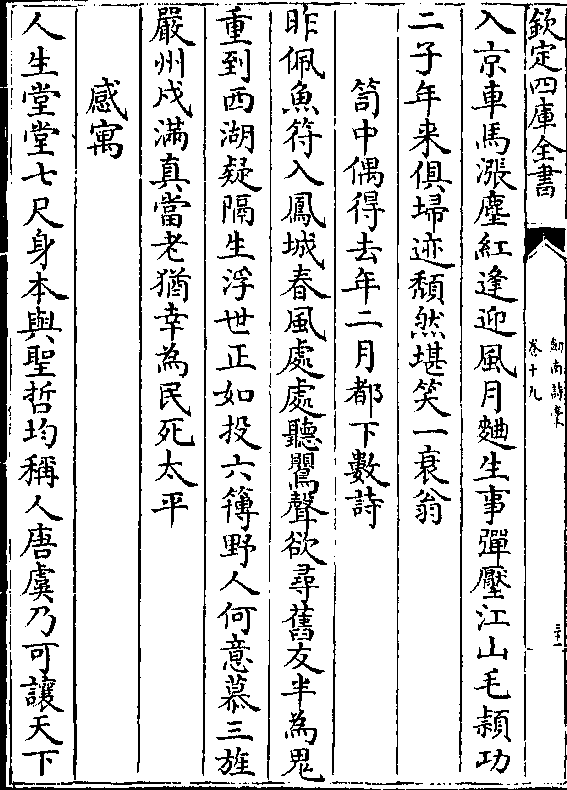 欽定四庫全書
劍南詩稾
卷十九
入京車馬漲塵紅逢迎風月麯生事彈壓江山毛潁功
二子年来俱埽迹頽然堪笑一衰翁
笥中偶得去年二月都下數詩
昨佩魚符入鳳城春風處處聽鸎聲欲尋舊友半為鬼
重到西湖疑隔生浮世正如投六簿野人何意慕三旌
嚴州戍滿真當老猶幸為民死太平
感寓
人生堂堂七尺身本與聖哲均稱人唐虞乃可讓天下